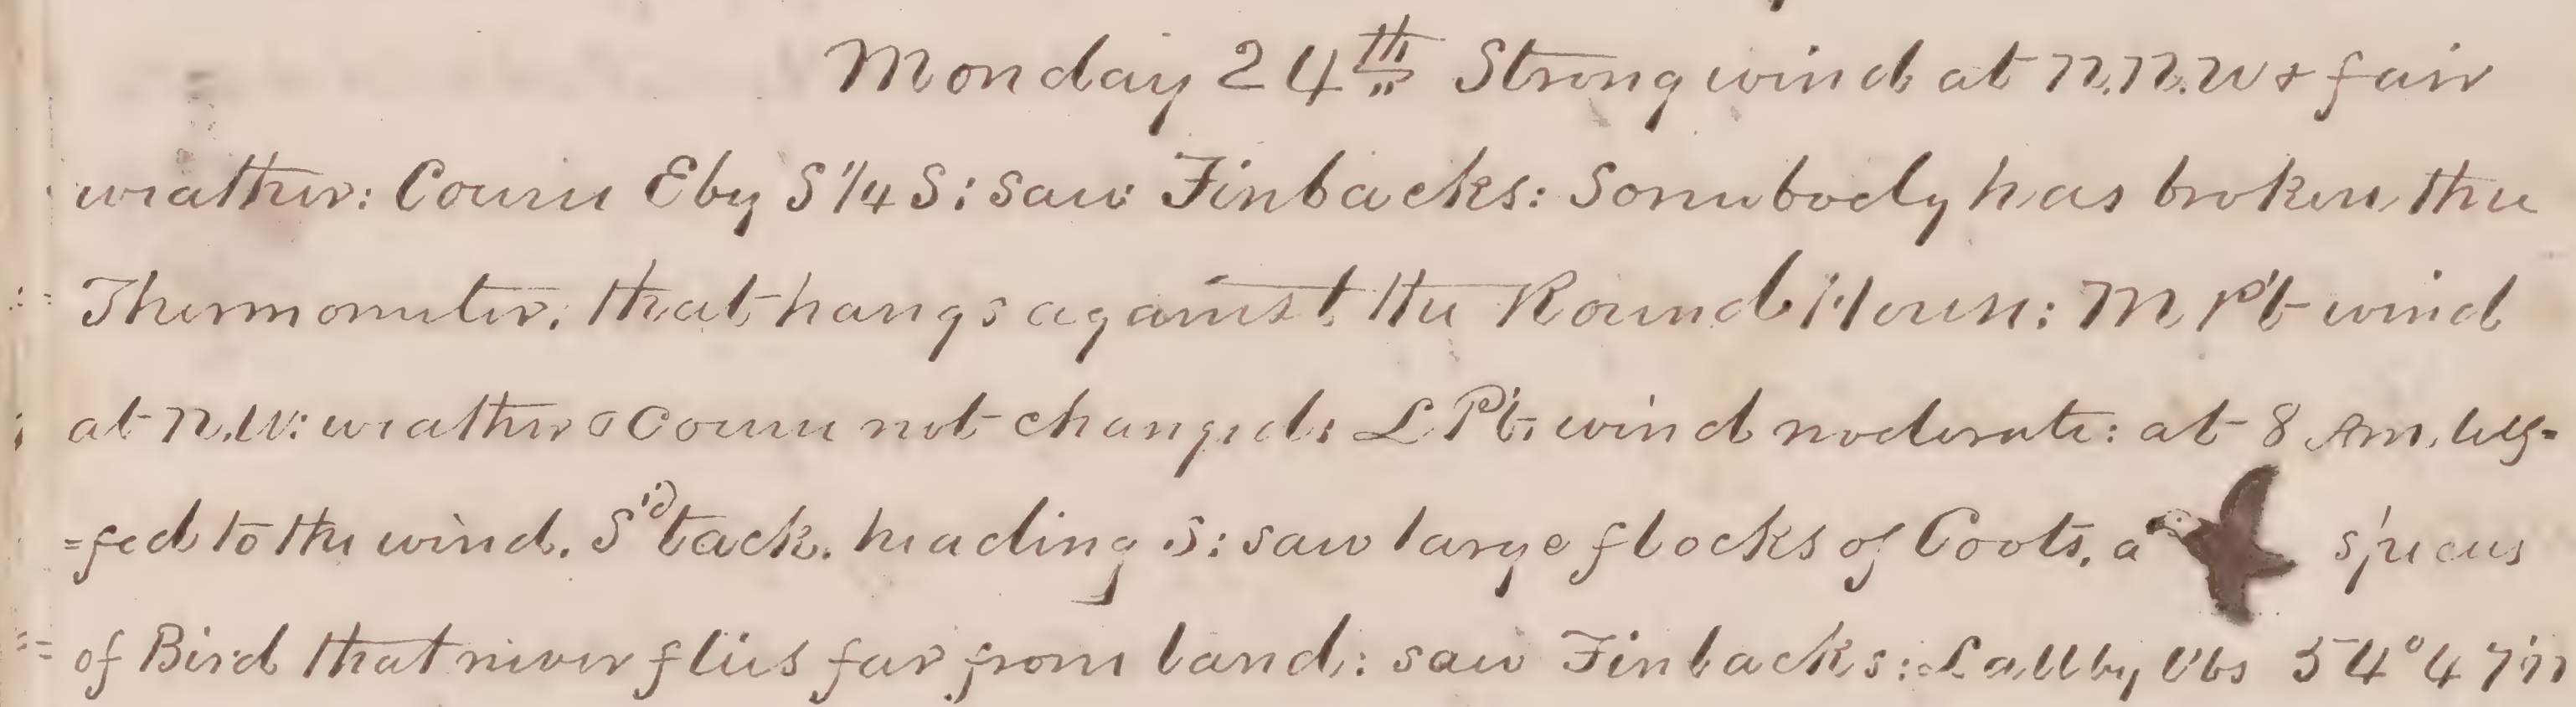 Monday 24th Strong wind at N.N.W & fair
weather: Course E by S 1/4 S: saw Finbacks: Somebody has broken the
Thermometer, that hangs against the Round House: M Pt wind
at N.W: weather & Course not changed: L Pt, wind moderate: at 8 Am, luf-
=fed to the wind. Sd tack. heading S: saw large flocks of Coots, a species
of Bird that never flies far from land: saw Finbacks: Latt by Obs 54°47'